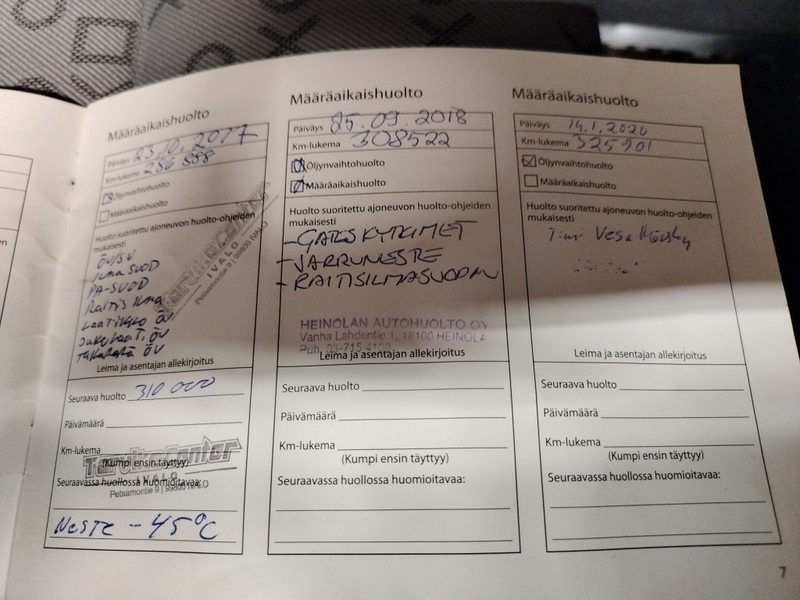 Määräaikaishuolto
Päiväys 23.10.2017
Km-lukema 286 888
Öljynvaihtohuolto
Määräaikaishuolto
Huolto suoritettu ajoneuvon huolto-ohjeiden
mukaisesti
ÖV/SV
ilma SUOD
PA-SUOD
Raitis ilma
Laatikko ÖV
Jakolaati ÖV
Takaperä ÖV
TarvikeCenter
IVALO
Petsamontie 9 | 99800 IVALO
Leima ja asentajan allekirjoitus
Seuraava huolto 310 000
Päivämäärä
Km-lukema
(Kumpi ensin täyttyy)
TarvikeCenter
IVALO
Petsamontie 9 | 99800 IVALO
Seuraavassa huollossa huomioitavaa:
Neste -45°C
Määräaikaishuolto
Päiväys 25.09.2018
Km-lukema 308522
Öljynvaihtohuolto
Määräaikaishuolto
Huolto suoritettu ajoneuvon huolto-ohjeiden
mukaisesti
-JARRUNESTE
-RAITISILMASUODIN
HEINOLAN AUTOHUOLTO OY
Vanha Lahdentie 1, 18100 HEINOLA
Puh. 03-715
Leima ja asentajan allekirjoitus
Seuraava huolto
Päivämäärä
Km-lukema
(Kumpi ensin täyttyy)
Seuraavassa huollossa huomioitavaa:
Määräaikaishuolto
Päiväys 14.1.2020
Km-lukema 325901
Öljynvaihtohuolto
Määräaikaishuolto
Huolto suoritettu ajoneuvon huolto-ohjeiden
mukaisesti
T:mi Vesa
Leima ja asentajan allekirjoitus
Seuraava huolto
Päivämäärä
Km-lukema
(Kumpi ensin täyttyy)
Seuraavassa huollossa huomioitavaa:
7